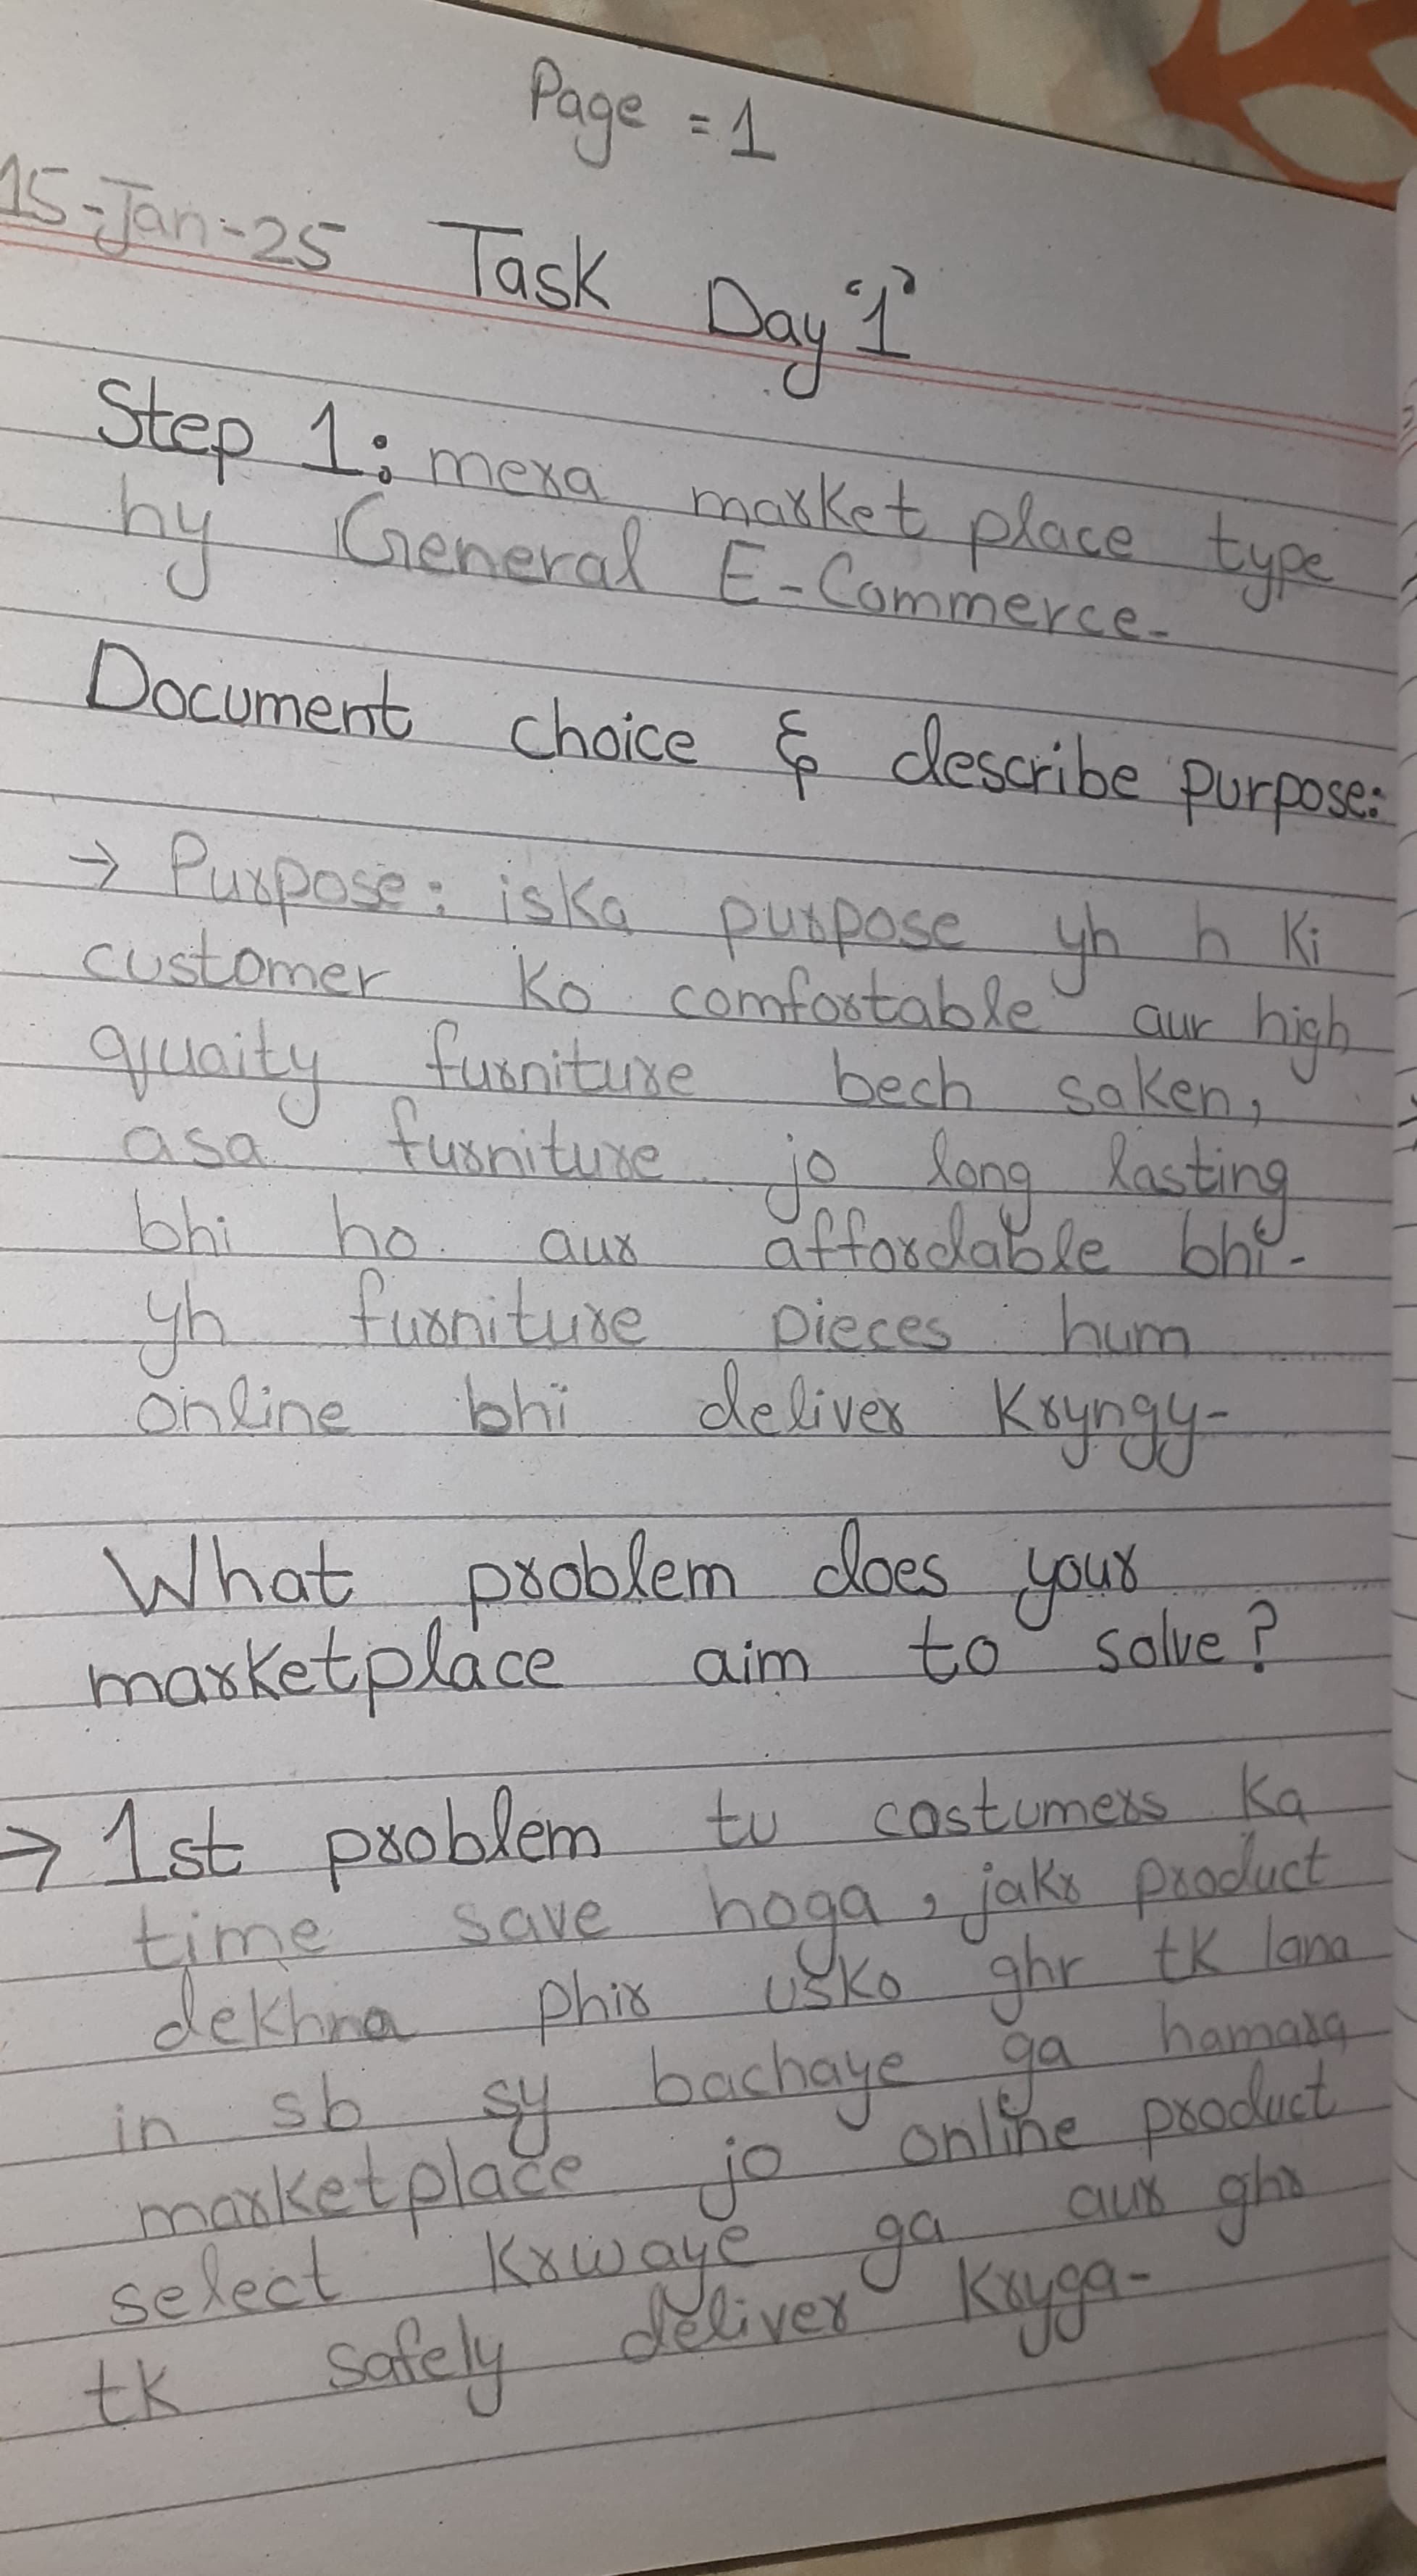 Page = 1
15-Jan-25 Task Day "1"
Step 1: mera market place type
hy General E-Commerce-
Document choice & describe purpose:
→ Purpose: iska purpose yh h ki
customer ko comfortable aur high
quaity furniture bech saken,
asa furniture jo long lasting
bhi ho aur affordable bhi-
yh furniture pieces hum
online bhi deliver kryngy-
What problem does your
marketplace aim to solve?
→ 1st problem tu costumers ka
time save hoga, jakr product
dekhna phir usko ghr tk lana
in sb sy bachaye ga hamara
marketplace jo online product
select krwaye ga aur ghr
tk safely deliver kryga-